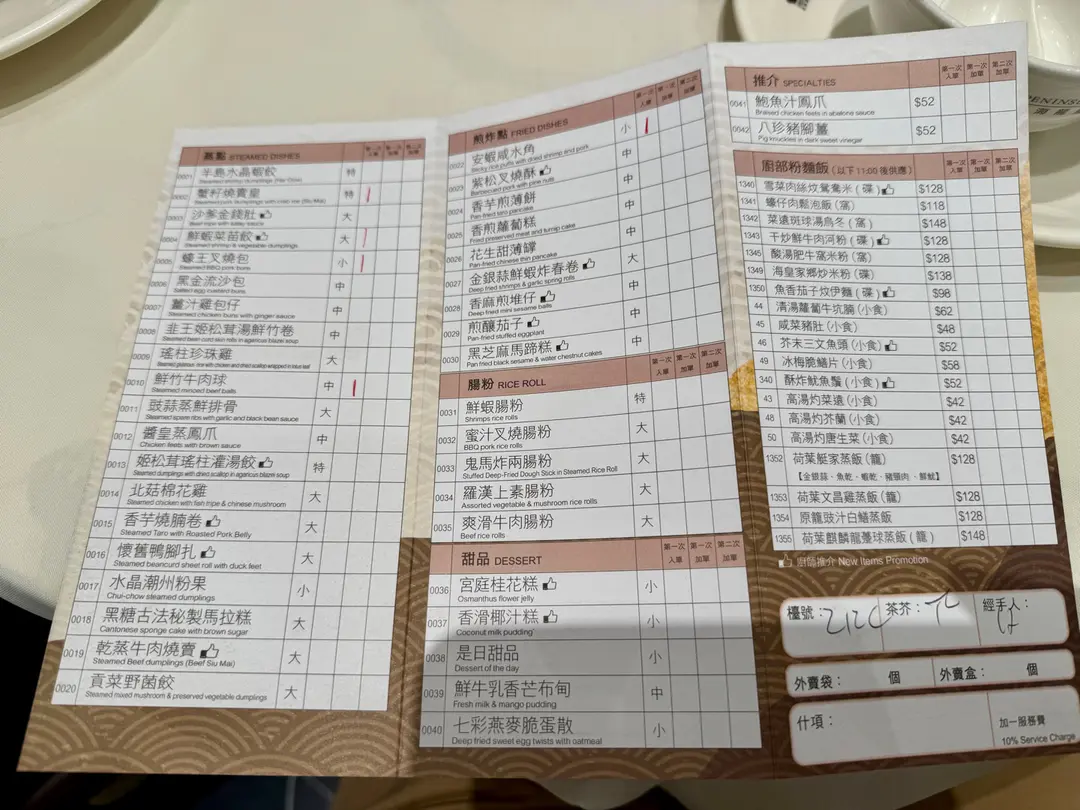 蒸點 STEAMED DISHES
第一次入單 第一次加單 第二次加單
0001 半島水晶蝦餃 特
Steamed shrimp dumplings (Har Gow)
0002 蟹籽燒賣皇 特
0003 沙爹金錢肚 大
Beef tripe with satay sauce
0004 鮮蝦菜苗餃 大
Steamed shrimp & vegetable dumplings
0005 蠔王叉燒包 小
Steamed BBQ pork buns
0006 黑金流沙包 中
Salted egg custard buns
0007 薑汁雞包仔 中
Steamed chicken buns with ginger sauce
0008 韭王姬松茸湯鮮竹卷 中
Steamed bean curd skin rolls in agaricus blazei soup
0009 瑤柱珍珠雞 大
0010 鮮竹牛肉球 中
Steamed minced beef balls
0011 豉蒜蒸鮮排骨 大
Steamed spare ribs with garlic and black bean sauce
0012 醬皇蒸鳳爪 中
Chicken feets with brown sauce
0013 姬松茸瑤柱灌湯餃 特
Steamed dumplings with dried scallop in agaricus blazei soup
0014 北菇棉花雞 大
Steamed chicken with fish tripe & chinese mushroom
0015 香芋燒腩卷 大
Steamed Taro with Roasted Pork Belly
0016 懷舊鴨腳扎 大
Steamed beancurd sheet roll with duck feet
0017 水晶潮州粉果 小
Chui-chow steamed dumplings
0018 黑糖古法秘製馬拉糕 大
Cantonese sponge cake with brown sugar
0019 乾蒸牛肉燒賣 大
Steamed Beef dumplings (Beef Siu Mai)
0020 貢菜野菌餃 大
Steamed mixed mushroom & preserved vegetable dumplings
煎炸點 FRIED DISHES
第一次入單 第一次加單 第二次加單
小
0022 安蝦咸水角 中
Sticky rice puffs with dried shrimp and pork
0023 紫松叉燒酥 中
Barbecued pork with pine nuts
0024 香芋煎薄餅 中
Pan-fried taro pancake
0025 香煎蘿蔔糕 中
Fried preserved meat and turnip cake
0026 花生甜薄罉 小
Pan-fried chinese thin pancake
0027 金銀蒜鮮蝦炸春卷 大
Deep fried shrimps & garlic spring rolls
0028 香麻煎堆仔 中
Deep fried mini sesame balls
0029 煎釀茄子 中
Pan-fried stuffed eggplant
0030 黑芝麻馬蹄糕 中
Pan fried black sesame & water chestnut cakes
腸粉 RICE ROLL
第一次入單 第一次加單 第二次加單
0031 鮮蝦腸粉 特
Shrimps rice rolls
0032 蜜汁叉燒腸粉 大
BBQ pork rice rolls
0033 鬼馬炸兩腸粉 大
Stuffed Deep-Fried Dough Stick in Steamed Rice Roll
0034 羅漢上素腸粉 大
Assorted vegetable & mushroom rice rolls
0035 爽滑牛肉腸粉 大
Beef rice rolls
甜品 DESSERT
第一次入單 第一次加單 第二次加單
0036 宮庭桂花糕 小
Osmanthus flower jelly
0037 香滑椰汁糕 小
Coconut milk pudding
0038 是日甜品 小
Dessert of the day
0039 鮮牛乳香芒布甸 中
Fresh milk & mango pudding
0040 七彩燕麥脆蛋散 小
Deep fried sweet egg twists with oatmeal
推介 SPECIALTIES
第一次入單 第一次加單 第二次加單
0041 鮑魚汁鳳爪 $52
Braised chicken feets in abalone sauce
0042 八珍豬腳薑 $52
Pig knuckles in dark sweet vinegar
廚部粉麵飯 (以下 11:00 後供應)
第一次入單 第一次加單 第二次加單
1340 雪菜肉絲炆鴛鴦米 (碟) $128
1341 蠔仔肉鬆泡飯 (窩) $118
1342 菜遠斑球湯烏冬 (窩) $148
1343 干炒鮮牛肉河粉 (碟) $128
1345 酸湯肥牛窩米粉 (窩) $128
1349 海皇家鄉炒米粉 (碟) $138
1350 魚香茄子炆伊麵 (碟) $98
44 清湯蘿蔔牛坑腩 (小食) $62
45 咸菜豬肚 (小食) $48
46 芥末三文魚頭 (小食) $52
49 冰梅脆鱔片 (小食) $58
340 酥炸魷魚鬚 (小食) $52
43 高湯灼菜遠 (小食) $42
48 高湯灼芥蘭 (小食) $42
50 高湯灼唐生菜 (小食) $42
1352 荷葉艇家蒸飯 (籠) $128
【金銀蒜、魚乾、蝦乾、豬頸肉、鮮魷】
1353 荷葉文昌雞蒸飯 (籠) $128
1354 原籠豉汁白鱔蒸飯 $128
1355 荷葉麒麟龍躉球蒸飯 (籠) $148
廚師推介 New Items Promotion
檯號: 茶芥: 經手人:
外賣袋: 個 外賣盒: 個
什項: 加一服務費
10% Service Charge
PENINS